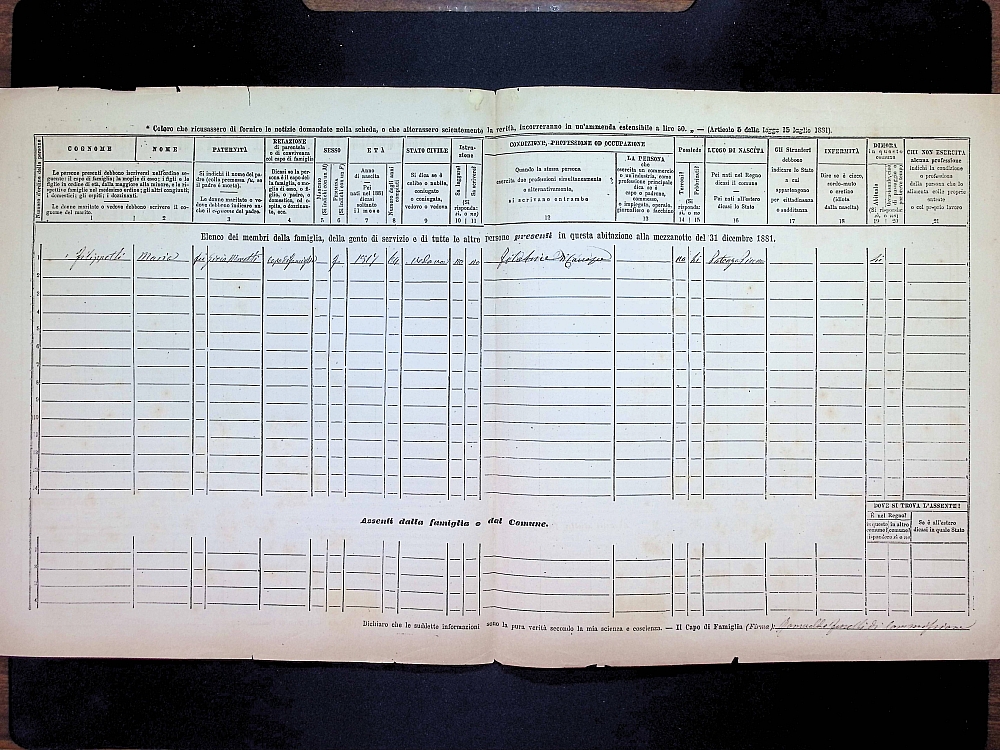 * Coloro che ricusassero di fornire le notizie domandate nella scheda, o che alterassero scientemente la verità, incorreranno in un'ammenda estensibile a lire 50. „ — (Articolo 5 della legge 15 luglio 1881).
COGNOME
NOME
PATERNITÀ
RELAZIONE
di parentela
o di convivenza
col capo di famiglia
SESSO
ETÀ
STATO CIVILE
Istruzione
CONDIZIONE, PROFESSIONE OD OCCUPAZIONE
Possiede
LUOGO DI NASCITA
Gli Stranieri
debbono
indicare lo Stato
a cui
appartengono
per cittadinanza
o sudditanza
INFERMITÀ
DIMORA
in questo
comune
CHI NON ESERCITA
alcuna professione
indichi la condizione
o professione
della persona che lo
alimenta colle proprie
entrate
o col proprio lavoro
Le persone presenti debbono inscriversi nell'ordine seguente:
il capo di famiglia; la moglie di esso; i figli e le
figlie in ordine di età, dalla maggiore alla minore, e le rispettive
famiglie nel medesimo ordine; gli altri congiunti;
i domestici; gli ospiti; i dozzinanti.
Le donne maritate o vedove debbono scrivere il cognome
del marito.
Si indichi il nome del padre
(colla premessa fu, se
il padre è morto).
Le donne maritate o vedove
debbono indicare anche
il cognome del padre.
Dicasi se la persona
è il capo della
famiglia, o moglie
di esso, o figlio,
o padre, o
domestica, od ospite,
o dozzinante,
ecc.
Maschio
(Si indichi con un M)
Femmina
(Si indichi con un F)
Anno
di nascita
Pei
nati nel 1881
dicasi
soltanto
il mese
Numero degli anni
compiuti
Si dica se è
celibe o nubile,
coniugato
o coniugata,
vedovo o vedova
Sa leggere?
Sa scrivere?
(Si
risponda:
sì, o no)
Quando la stessa persona
esercita due professioni simultaneamente
o alternativamente,
si scrivano entrambe
LA PERSONA
che
esercita un commercio
o un'industria, come
professione principale
dica se è
capo o padrone,
commesso,
o impiegato, operaio,
giornaliero o facchino
Terreni?
Fabbricati?
(Si
risponda:
sì, o no
Pei nati nel Regno
dicasi il comune
Pei nati all'estero
dicasi lo Stato
Dire se è cieco,
sordo-muto
o cretino
(idiota
dalla nascita)
Abituale
(Si risponda:
sì, o no)
1 2 3 4 5 6 7 8 9 10 11 12 13 14 15 16 17 18 19 20 21
Elenco dei membri della famiglia, della gente di servizio e di tutte le altre persone presenti in questa abitazione alla mezzanotte del 31 dicembre 1881.
Filippelli Maria capo di famiglia F 1817 64 vedova no no no si si
Assenti dalla famiglia o dal Comune.
DOVE SI TROVA L'ASSENTE?
È nel Regno?
in questo comune?
in altro comune?
rispondere sì o no
Se è all'estero
dicasi in quale Stato
Dichiaro che le suddette informazioni sono la pura verità secondo la mia scienza e coscienza. — Il Capo di Famiglia (Firma):